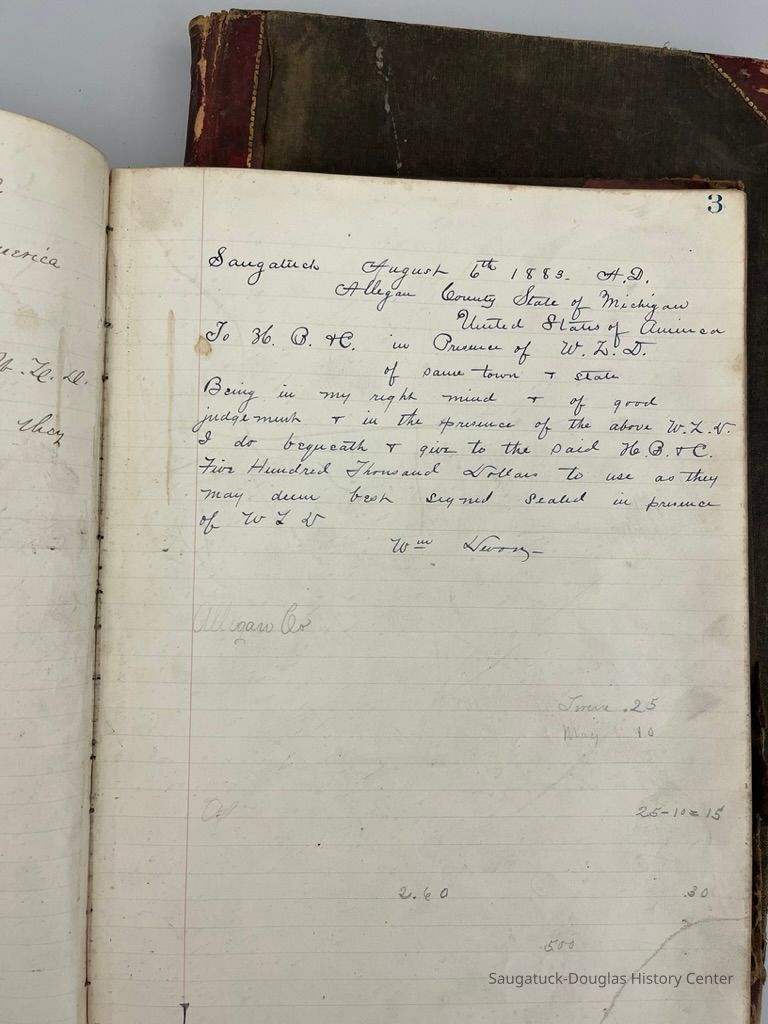 3
Saugatuck August 6th 1883. A.D.
Allegan County State of Michigan
United States of America
To H. B. & C. in Presence of W. L. D.
of same town & state
Being in my right mind & of good
judgement & in the presence of the above W. L. D.
I do bequeath & give to the said H. B. & C.
Five Hundred Thousand Dollars to use as they
may deem best signed sealed in presence
of W L D
Wm
Allegan Co
.25
May 10
25-10=15
2.60 .30
500
merica
they
Saugatuck-Douglas History Center